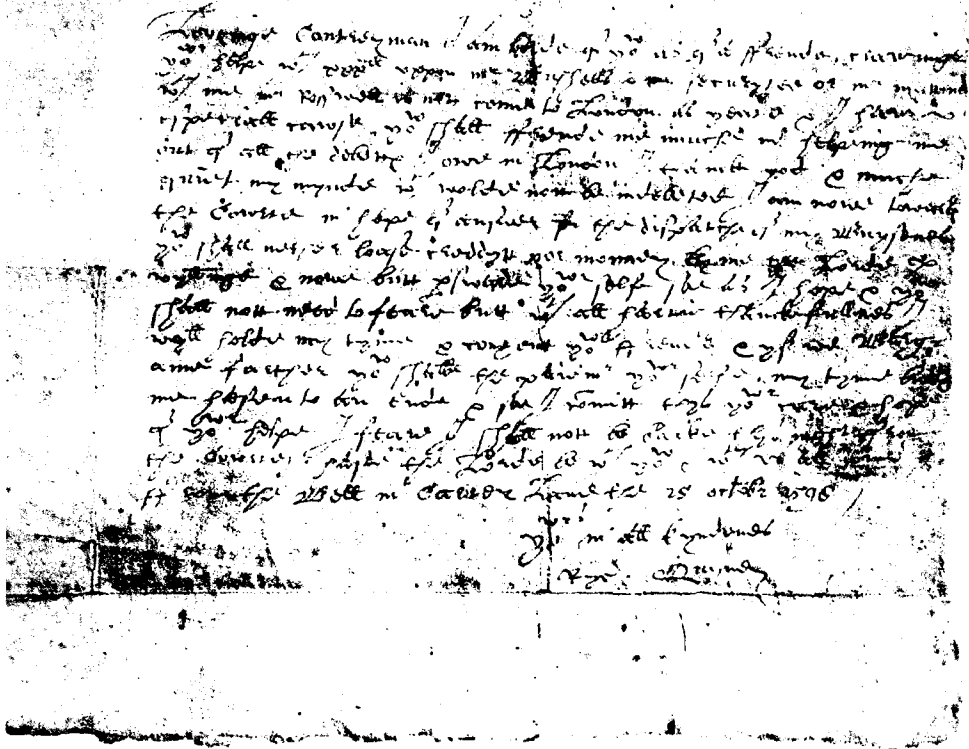 Loveinge Contreyman I am bolde of yow as of a ffrende, craveinge
yowr helpe wth xxxll vppon mr Bushells & my securytee or mr myttons
wth me mr Rosswell is nott come to London as yeate & I have
especiall cawse, yow shall ffrende me muche in helpeing me
out of all the debettes I owe in London I thancke god & muche
quiet my mynde wch wolde nott be indebeted I am nowe towardes
the Cowrte in hope of answer for the dispatche of my Buysenes
yow shall nether loase creddytt nor monney by me the Lorde
wyllinge & nowe butt pswade yowr selfe soe as I hope & yow
shall nott need to feare butt wth all hartie thanckefullnes I
wyll holde my tyme & content yowr ffrende & yf we Bargaine
farther yow shalbe the paiemr yowr selfe, my tyme biddes
me hasten to an ende & soe I comitt thys yowr care & hope
of yowr helpe I feare I shall nott be backe thys night ffrom
the Cowrte, haste the Lorde be wth yow & wth vs all Amen
ffrom the Bell in Carter Lane the 25 octobr 1598
yowrs in all kyndenes
Ryc. Quyney